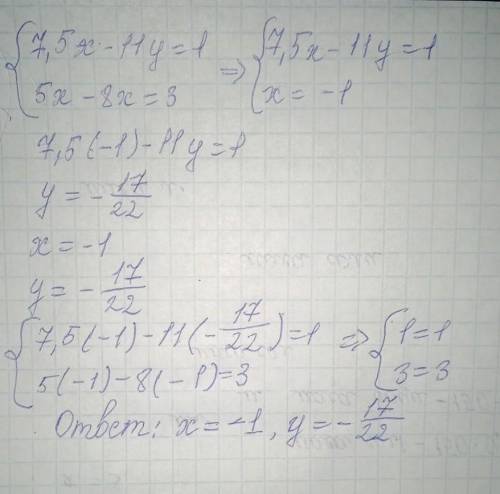 {7,5x - 11y = 1 => {7,5x - 11y = 1
{5x - 8x = 3 {x = -1
7,5(-1) - 11y = 1
y = -17/22
x = -1
y = -17/22
{7,5(-1) - 11(-17/22) = 1 => {1 = 1
{5(-1) - 8(-1) = 3 {3 = 3
Ответ: x = -1, y = -17/22